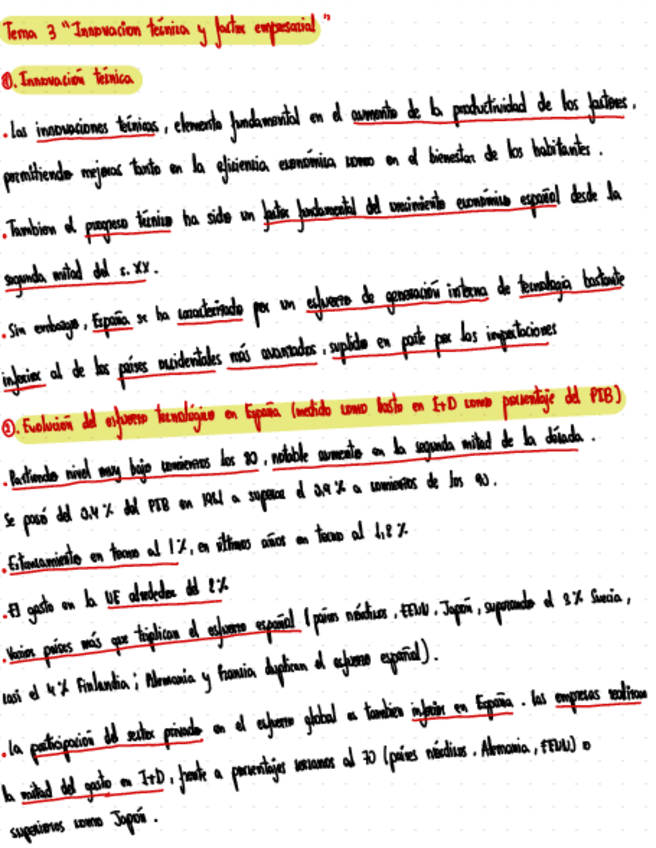 Tema 3 "Innovacion técnica y factor empresarial"
①. Innovación técnica
. Las innovaciones técnicas, elemento fundamental en el aumento de la productividad de los factores,
permitiendo mejoras tanto en la eficiencia económica como en el bienestar de los habitantes.
. Tambien el progreso técnico ha sido un factor fundamental del crecimiento económico español desde la
segunda mitad del s. XX.
. Sin embargo, España se ha caracterizado por un esfuerzo de generación interna de tecnologia bastante
inferior al de los países occidentales más avanzados, suplido en parte por las importaciones
②. Evolución del esfuerzo tecnológico en España (medido como Gasto en I+D como porcentaje del PIB)
. Partiendo nivel muy bajo comienzos los 80, notable aumento en la segunda mitad de la década.
Se pasó del 0,4% del PIB en 1981 a superar el 0,9% a comienzos de los 90.
. Estancamiento en torno al 1%, en últimos años en torno al 1,2%
. El gasto en la UE alrededor del 2%
. Varios países más que triplican el esfuerzo español (países nórdicos, EEUU, Japón, superando el 3% Suecia,
casi el 4% Finlandia; Alemania y Francia duplican el esfuerzo español).
. La participación del sector privado en el esfuerzo global es tambien inferior en España. Las empresas realizan
la mitad del gasto en I+D, frente a porcentajes cercanos al 70 (países nórdicos, Alemania, EEUU) o
superiores como Japón.